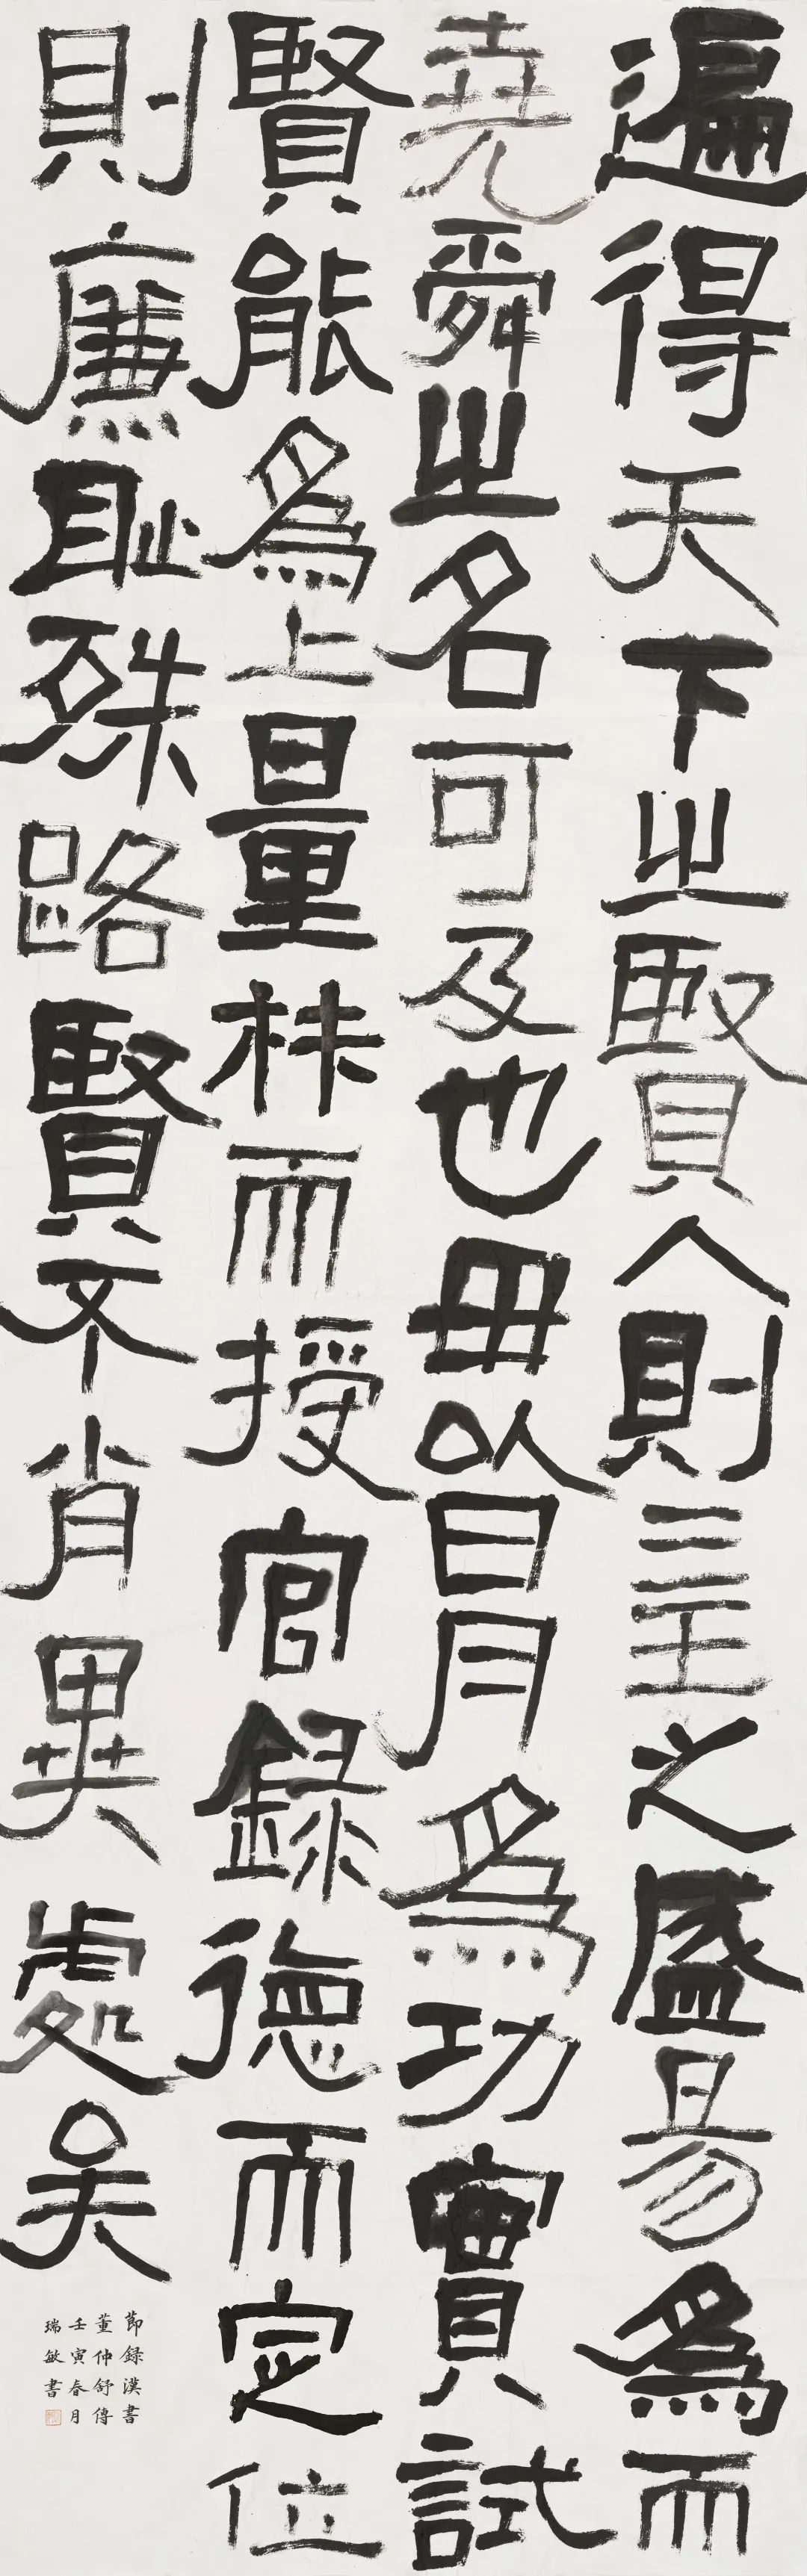 遍得天下之賢人則三王之盛易為而
堯舜之名可及也毋以日月為功實試
賢能為上量材而授官錄德而定位
則廉恥殊路賢不肖異處矣
節錄漢書
董仲舒傳
壬寅春月
瑞敏書